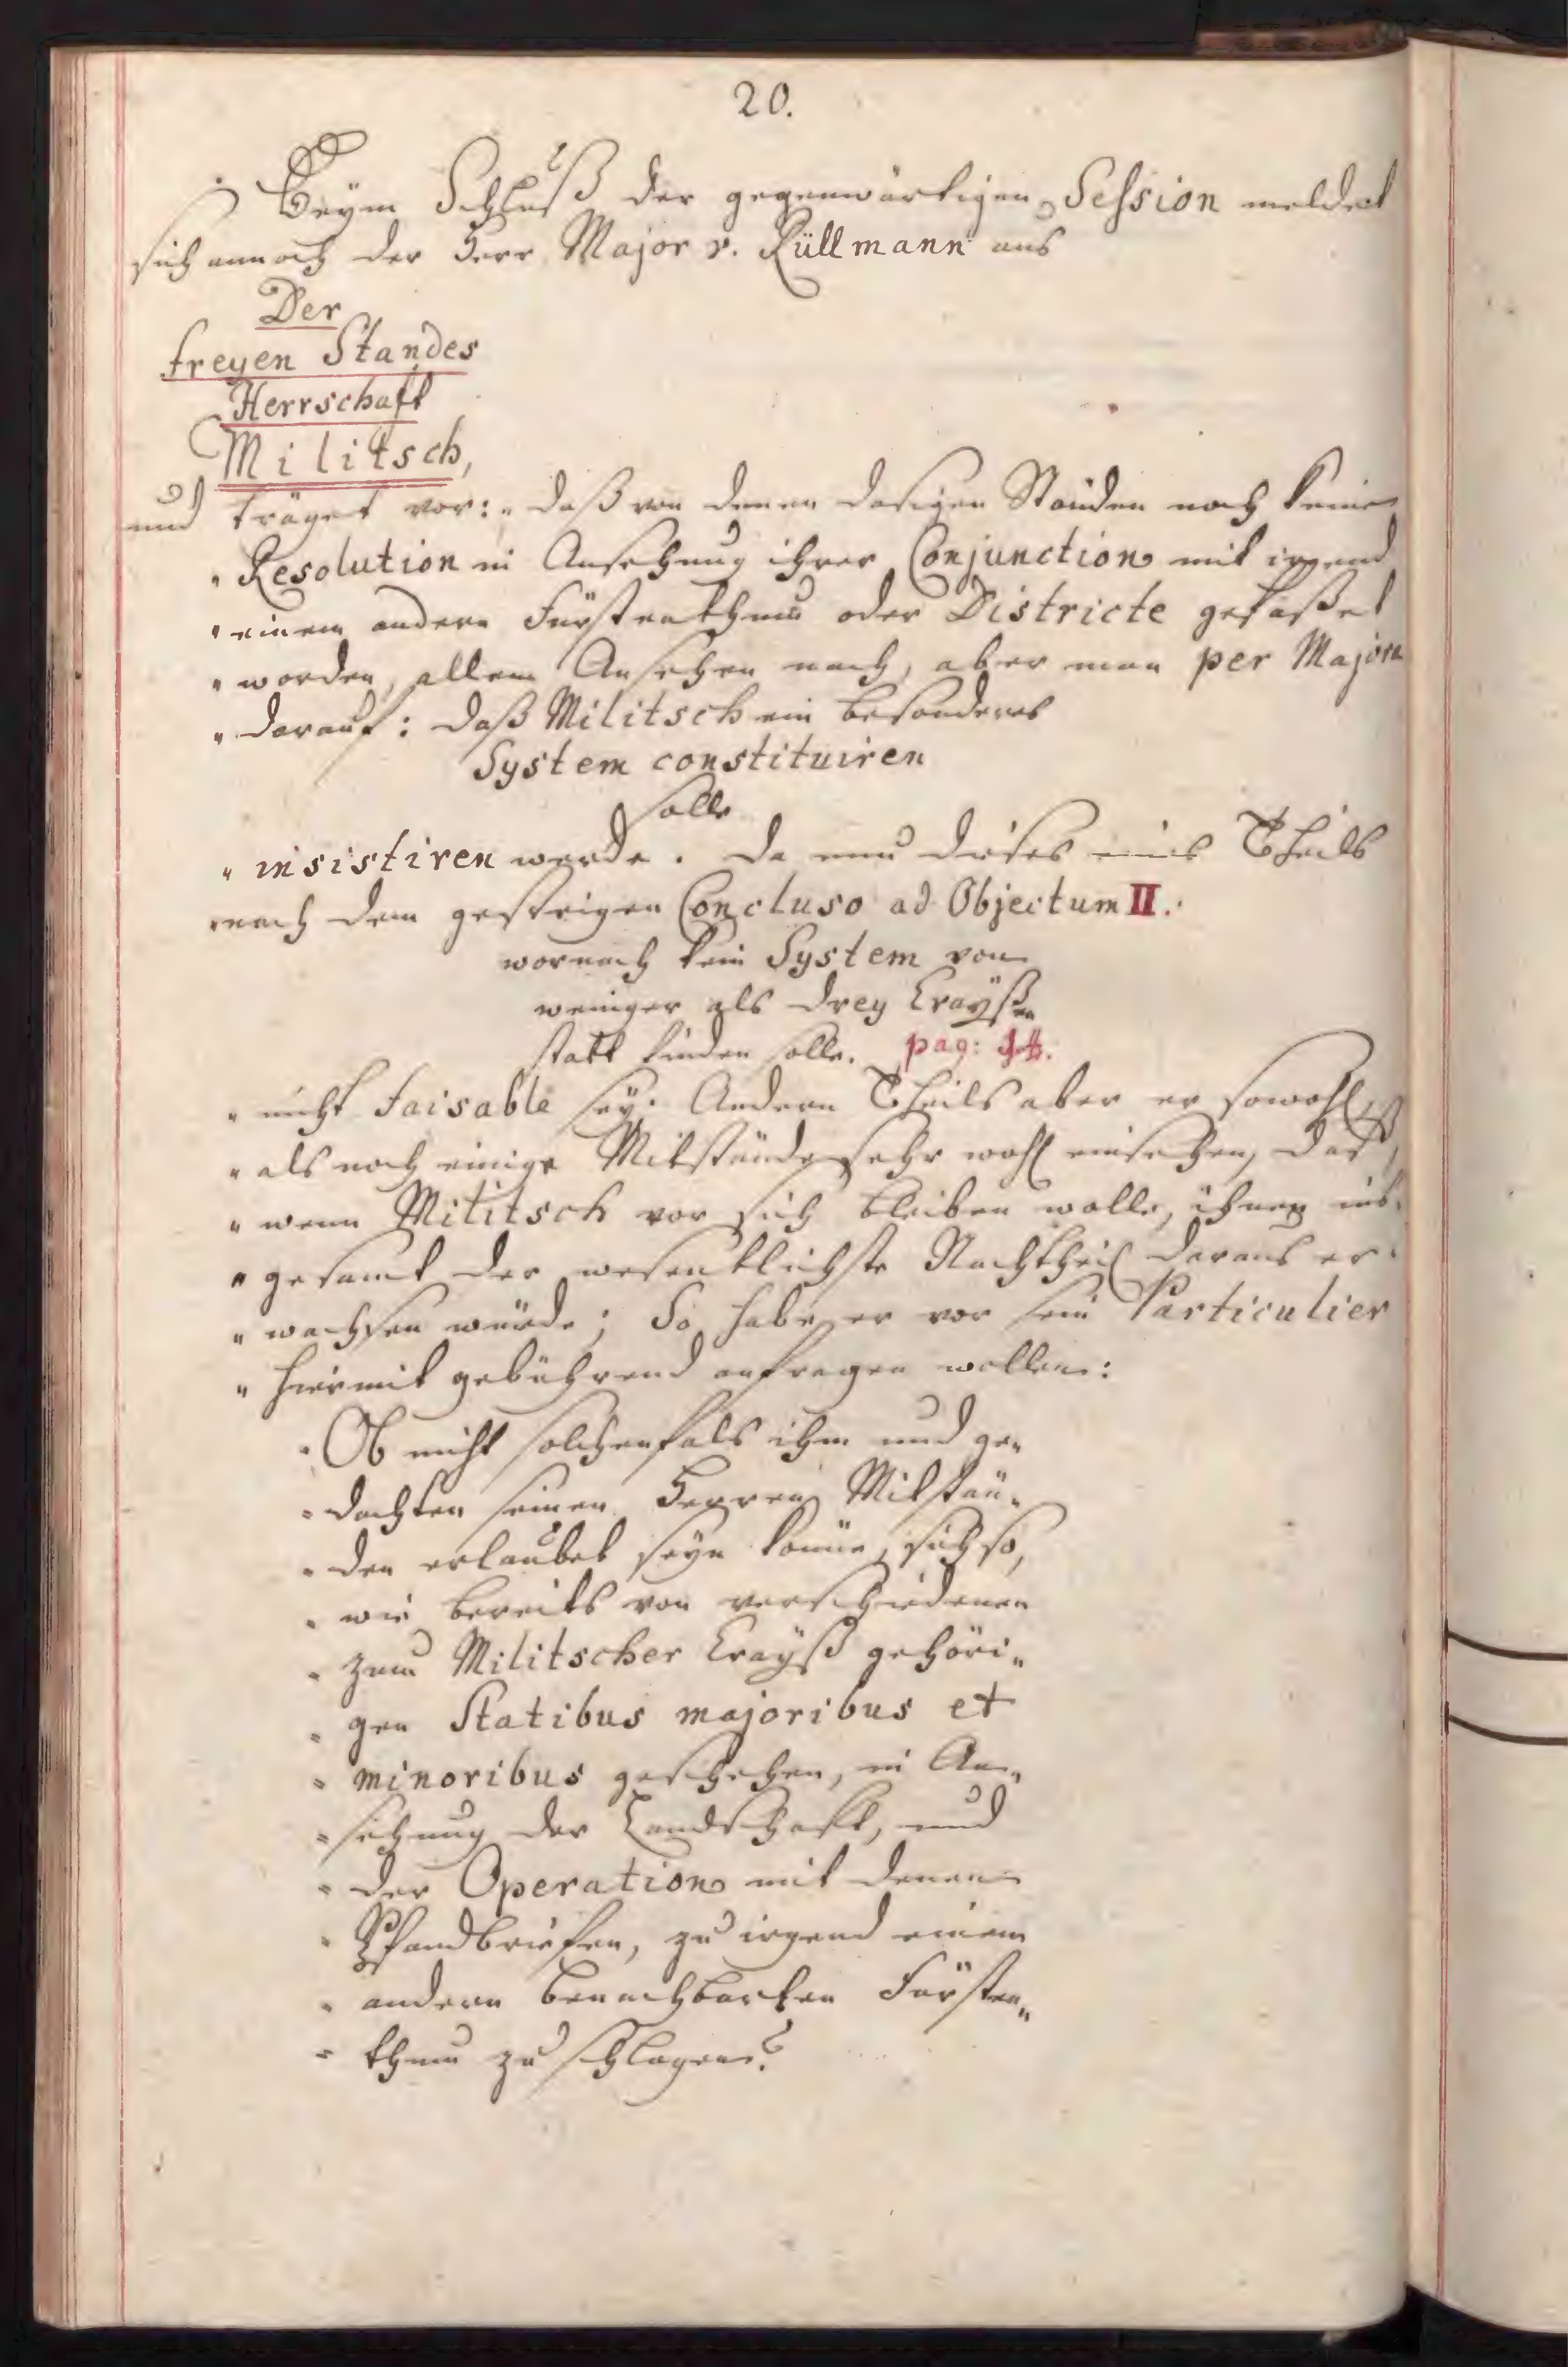 20.
Beym Schluß der gegenwärtigen Session meldet
sich annoch der Herr Major v. Rüllmann aus
Der
freyen Standes
Herrschaft
Militsch,
und träget vor: „daß von denen dasigen Ständen noch keine
„Resolution in Ansehung ihrer Conjunction mit irgend
„einem andern Fürstenthum oder Districte gefaßet
„worden, allem Ansehen nach, aber man per Majora
„darauf: daß Militsch ein besonderes
System constituiren
solle
„insistiren werde. Da nun dieses eines Theils
„nach dem gestrigen Concluso ad Objectum II.
wornach kein System von
weniger als drey Crayßen
statt finden solle. pag: 14.
„nicht faisable sey. Andern Theils aber er sowohl,
„als noch einige Mitstände sehr wohl einsehen, daß,
„wenn Militsch vor sich bleiben wolle, ihnen ins-
„gesamt der wesentlichste Nachtheil daraus er-
„wachsen würde; So habe er vor sein Particulier
„hiermit gebührend anfragen wollen:
„Ob nicht solchenfals ihm und ge„
„dachten seinen Herren Mitstän„
„den erlaubet seyn könne, sich so,
„wie bereits von verschiedenen
„zum Militscher Crayß gehöri„
„gen Statibus majoribus et
„minoribus geschehen, in An„
„sehung der Landschaft, und
„der Operation mit denen
„Pfandbriefen, zu irgend einem
„andern benachbarten Fürsten„
„thum zu schlagen?